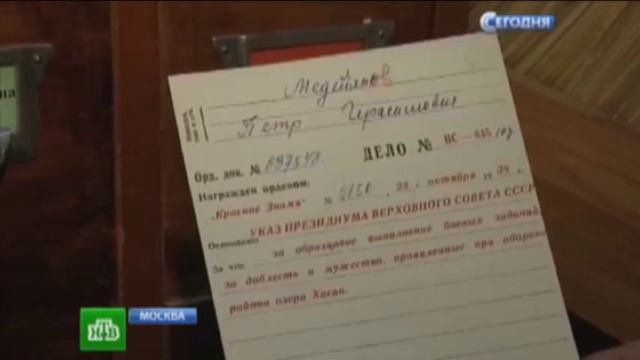 Сегодня
на
Медейянов
Петр Герасимович
Орд. док. № А37548 ДЕЛО № НС-845/
Награжден орденом:
"Красное Знамя" № 25 октября 19 34 г.
УКАЗ ПРЕЗИДИУМА ВЕРХОВНОГО СОВЕТА СССР
Основание
За что: за образцовое выполнение боевых заданий,
за доблесть и мужество, проявленные при обороне
района озера Хасан.
НТВ
МОСКВА